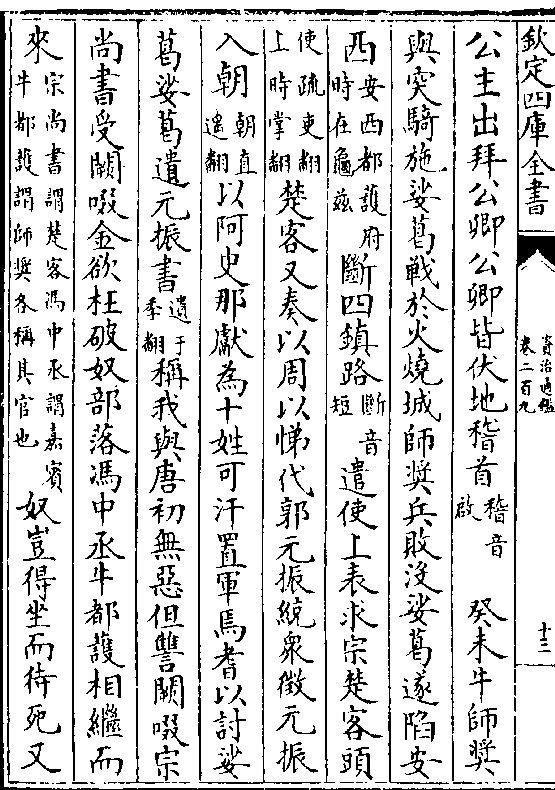 欽定四庫全書
資治通鑑
卷二百九
十三
公主出拜公卿公卿皆伏地稽首稽音啟癸未牛師奬
與突騎施娑葛戰於火燒城師奬兵敗沒娑葛遂陷安
西安西都護府時在龜兹斷四鎮路斷音短遣使上表求宗楚客頭
使疏吏翻上時掌翻楚客又奏以周以悌代郭元振統衆徵元振
入朝朝直遥翻以阿史那獻為十姓可汗置軍焉耆以討娑
葛娑葛遺元振書遺于季翻稱我與唐初無惡但讐闕啜宗
尚書受闕啜金欲枉破奴部落馮中丞牛都護相繼而
來宗尚書謂楚客馮中丞謂嘉賓牛都護謂師奬各稱其官也奴豈得坐而待死又